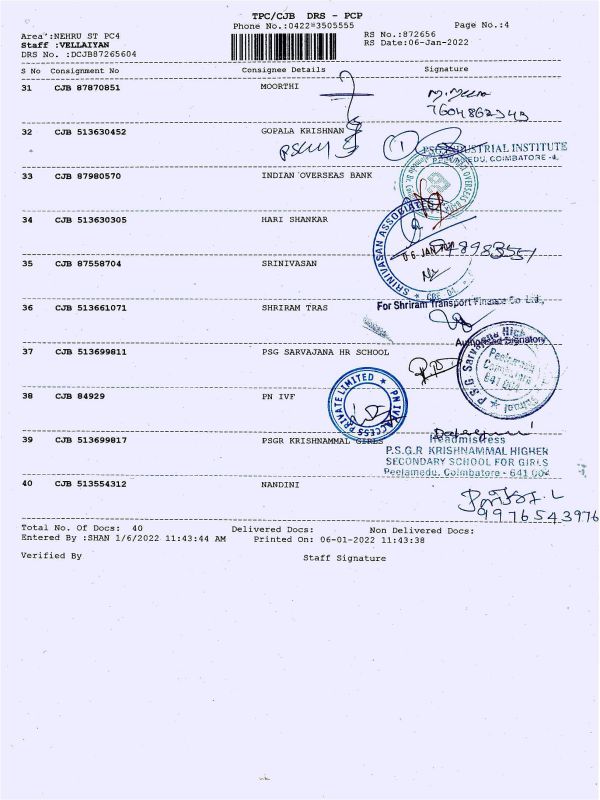 TPC/CJB DRS - PCP
Phone No.:0422*3505555
Page No.:4
Area :NEHRU ST PC4
RS No.:872656
Staff :VELLAIYAN
RS Date:06-Jan-2022
DRS No. :DCJB87265604
S No Consignment No Consignee Details Signature
31 CJB 87870851 MOORTHI
32 CJB 513630452 GOPALA KRISHNAN
PSG INDUSTRIAL INSTITUTE
PEELAMEDU, COIMBATORE -4.
33 CJB 87980570 INDIAN OVERSEAS BANK
34 CJB 513630305 HARI SHANKAR
SRINIVASAN ASSOCIATES
06 JAN
35 CJB 87558704 SRINIVASAN
36 CJB 513661071 SHRIRAM TRAS
For Shriram Transport Finance Co. Ltd.,
Authorised Signatory
37 CJB 513699811 PSG SARVAJANA HR SCHOOL
P.S.G Sarvajana High School
Peelamedu
Coimbatore
641 004
38 CJB 84929 PN IVF
PN IVF ACCESS PRIVATE LIMITED
39 CJB 513699817 PSGR KRISHNAMMAL GIRLS
Headmistress
P.S.G.R KRISHNAMMAL HIGHER
SECONDARY SCHOOL FOR GIRLS
Peelamedu, Coimbatore - 641 004
40 CJB 513554312 NANDINI
9976543976
Total No. Of Docs: 40 Delivered Docs: Non Delivered Docs:
Entered By :SHAN 1/6/2022 11:43:44 AM Printed On: 06-01-2022 11:43:38
Verified By Staff Signature